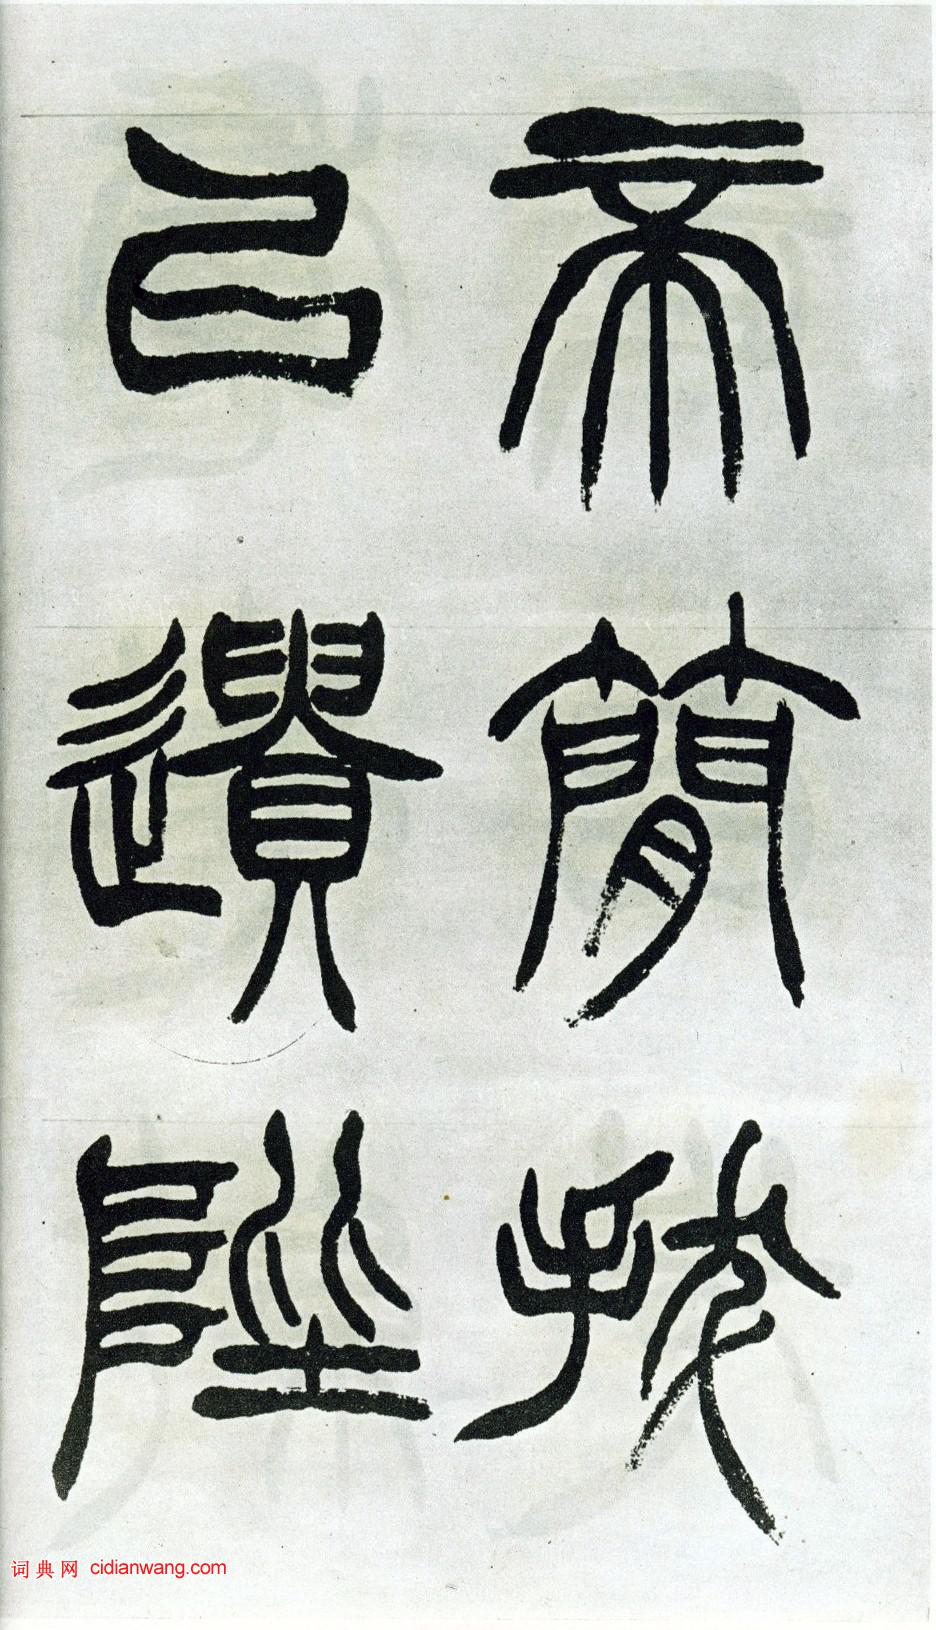 帝簡拔
以遺陛
词典网 cidianwang.com